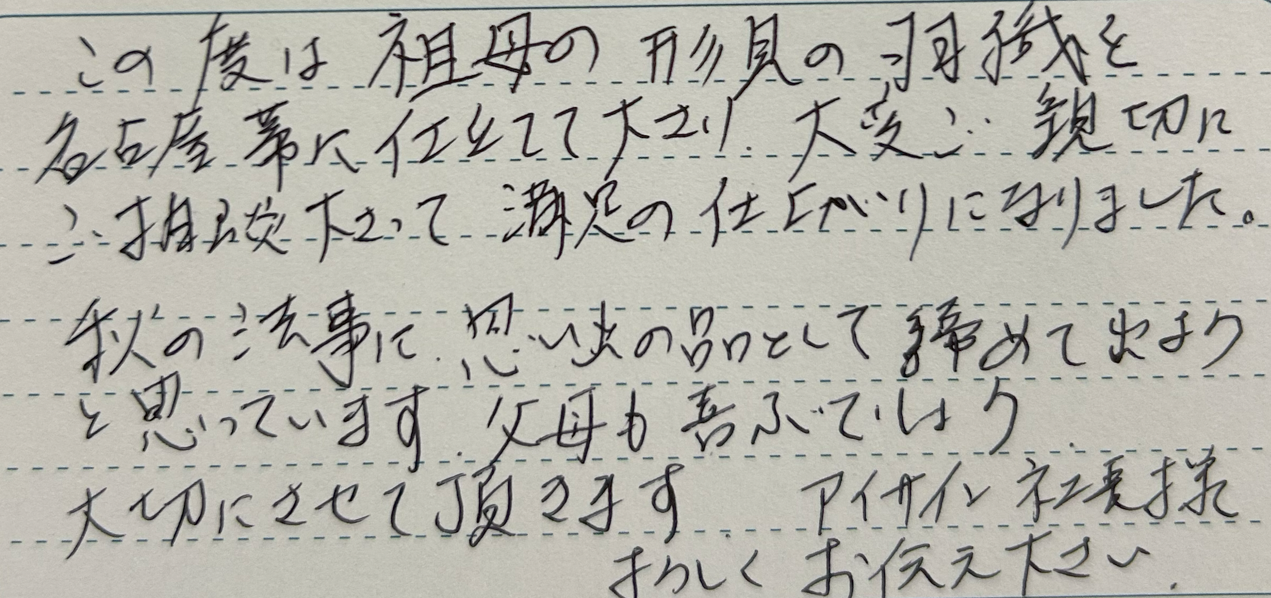 この度は 祖母の 形見の 羽織を
名古屋帯に 仕立てて下さり 大変ご親切に
ご相談下さって 満足の仕上がりになりました。
秋の法事に 思い出の品として 締めて出よう
と思っています 父母も 喜ぶでしょう
大切にさせて頂きます アイサイン 社長様
よろしく お伝え下さい.